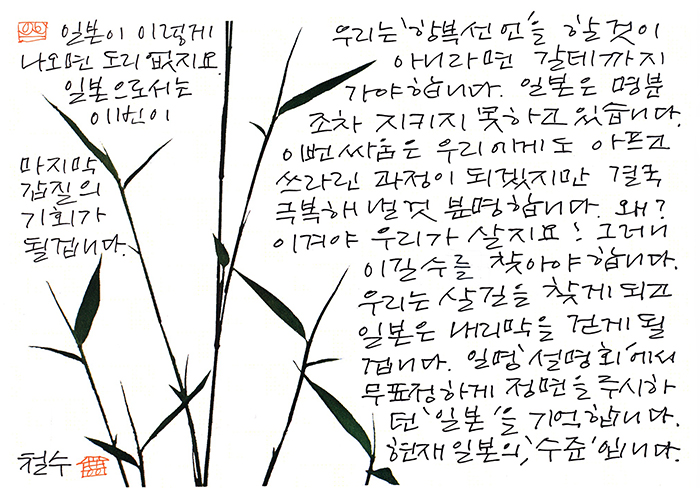 일본이 이렇게
나오면 도리 없지요.
일본으로서는
이번이
마지막
갑질의
기회가
될겁니다.
우리는 '항복선언'을 할 것이
아니라면 갈테까지
가야합니다. 일본은 명분
조차 지키지 못하고 있습니다.
이번싸움은 우리에게도 아프고
쓰라린 과정이 되겠지만 결국
극복해 낼것 분명합니다. 왜?
이겨야 우리가 살지요! 그러니
이길수를 찾아야 합니다.
우리는 살길을 찾게 되고
일본은 내리막을 걷게 될
겁니다. 일명 '설명회'에서
무표정하게 정면을 주시하
던 '일본'을 기억합니다.
현재 일본의, '수준'입니다.
철수